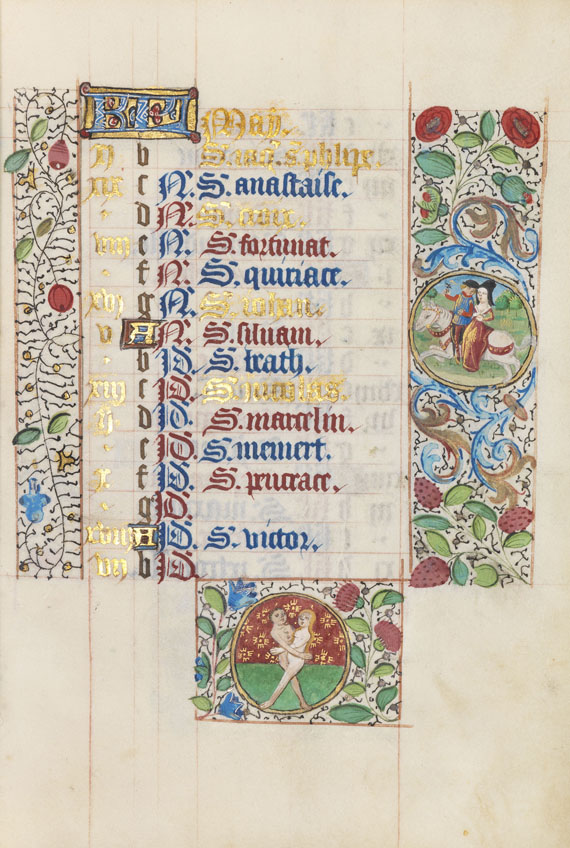 KL May.
ij b S. iaq. s. phlipe.
xix c N. S. anastaise.
d N. S. croix.
viij e N. S. fortunat.
f N. S. quiriace.
xvj g N. S. iohan.
v A N. S. siluain.
b D. S. beath.
xiij c D. S. nicolas.
ij d D. S. marcelin.
e D. S. memert.
x f D. S. pencrace.
g D.
xviij A D. S. victor.
vij b D.